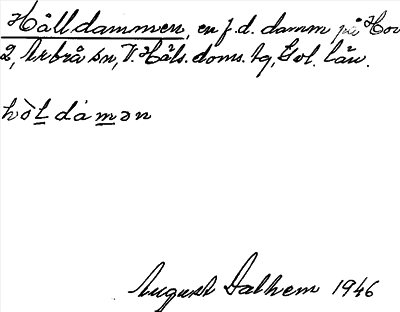 Hålldammen, en f.d. damm på Hov
2, Arbrå sn, V. Häls. doms. tg, Gvl. län.
hòl dámən
August Dalhem 1946